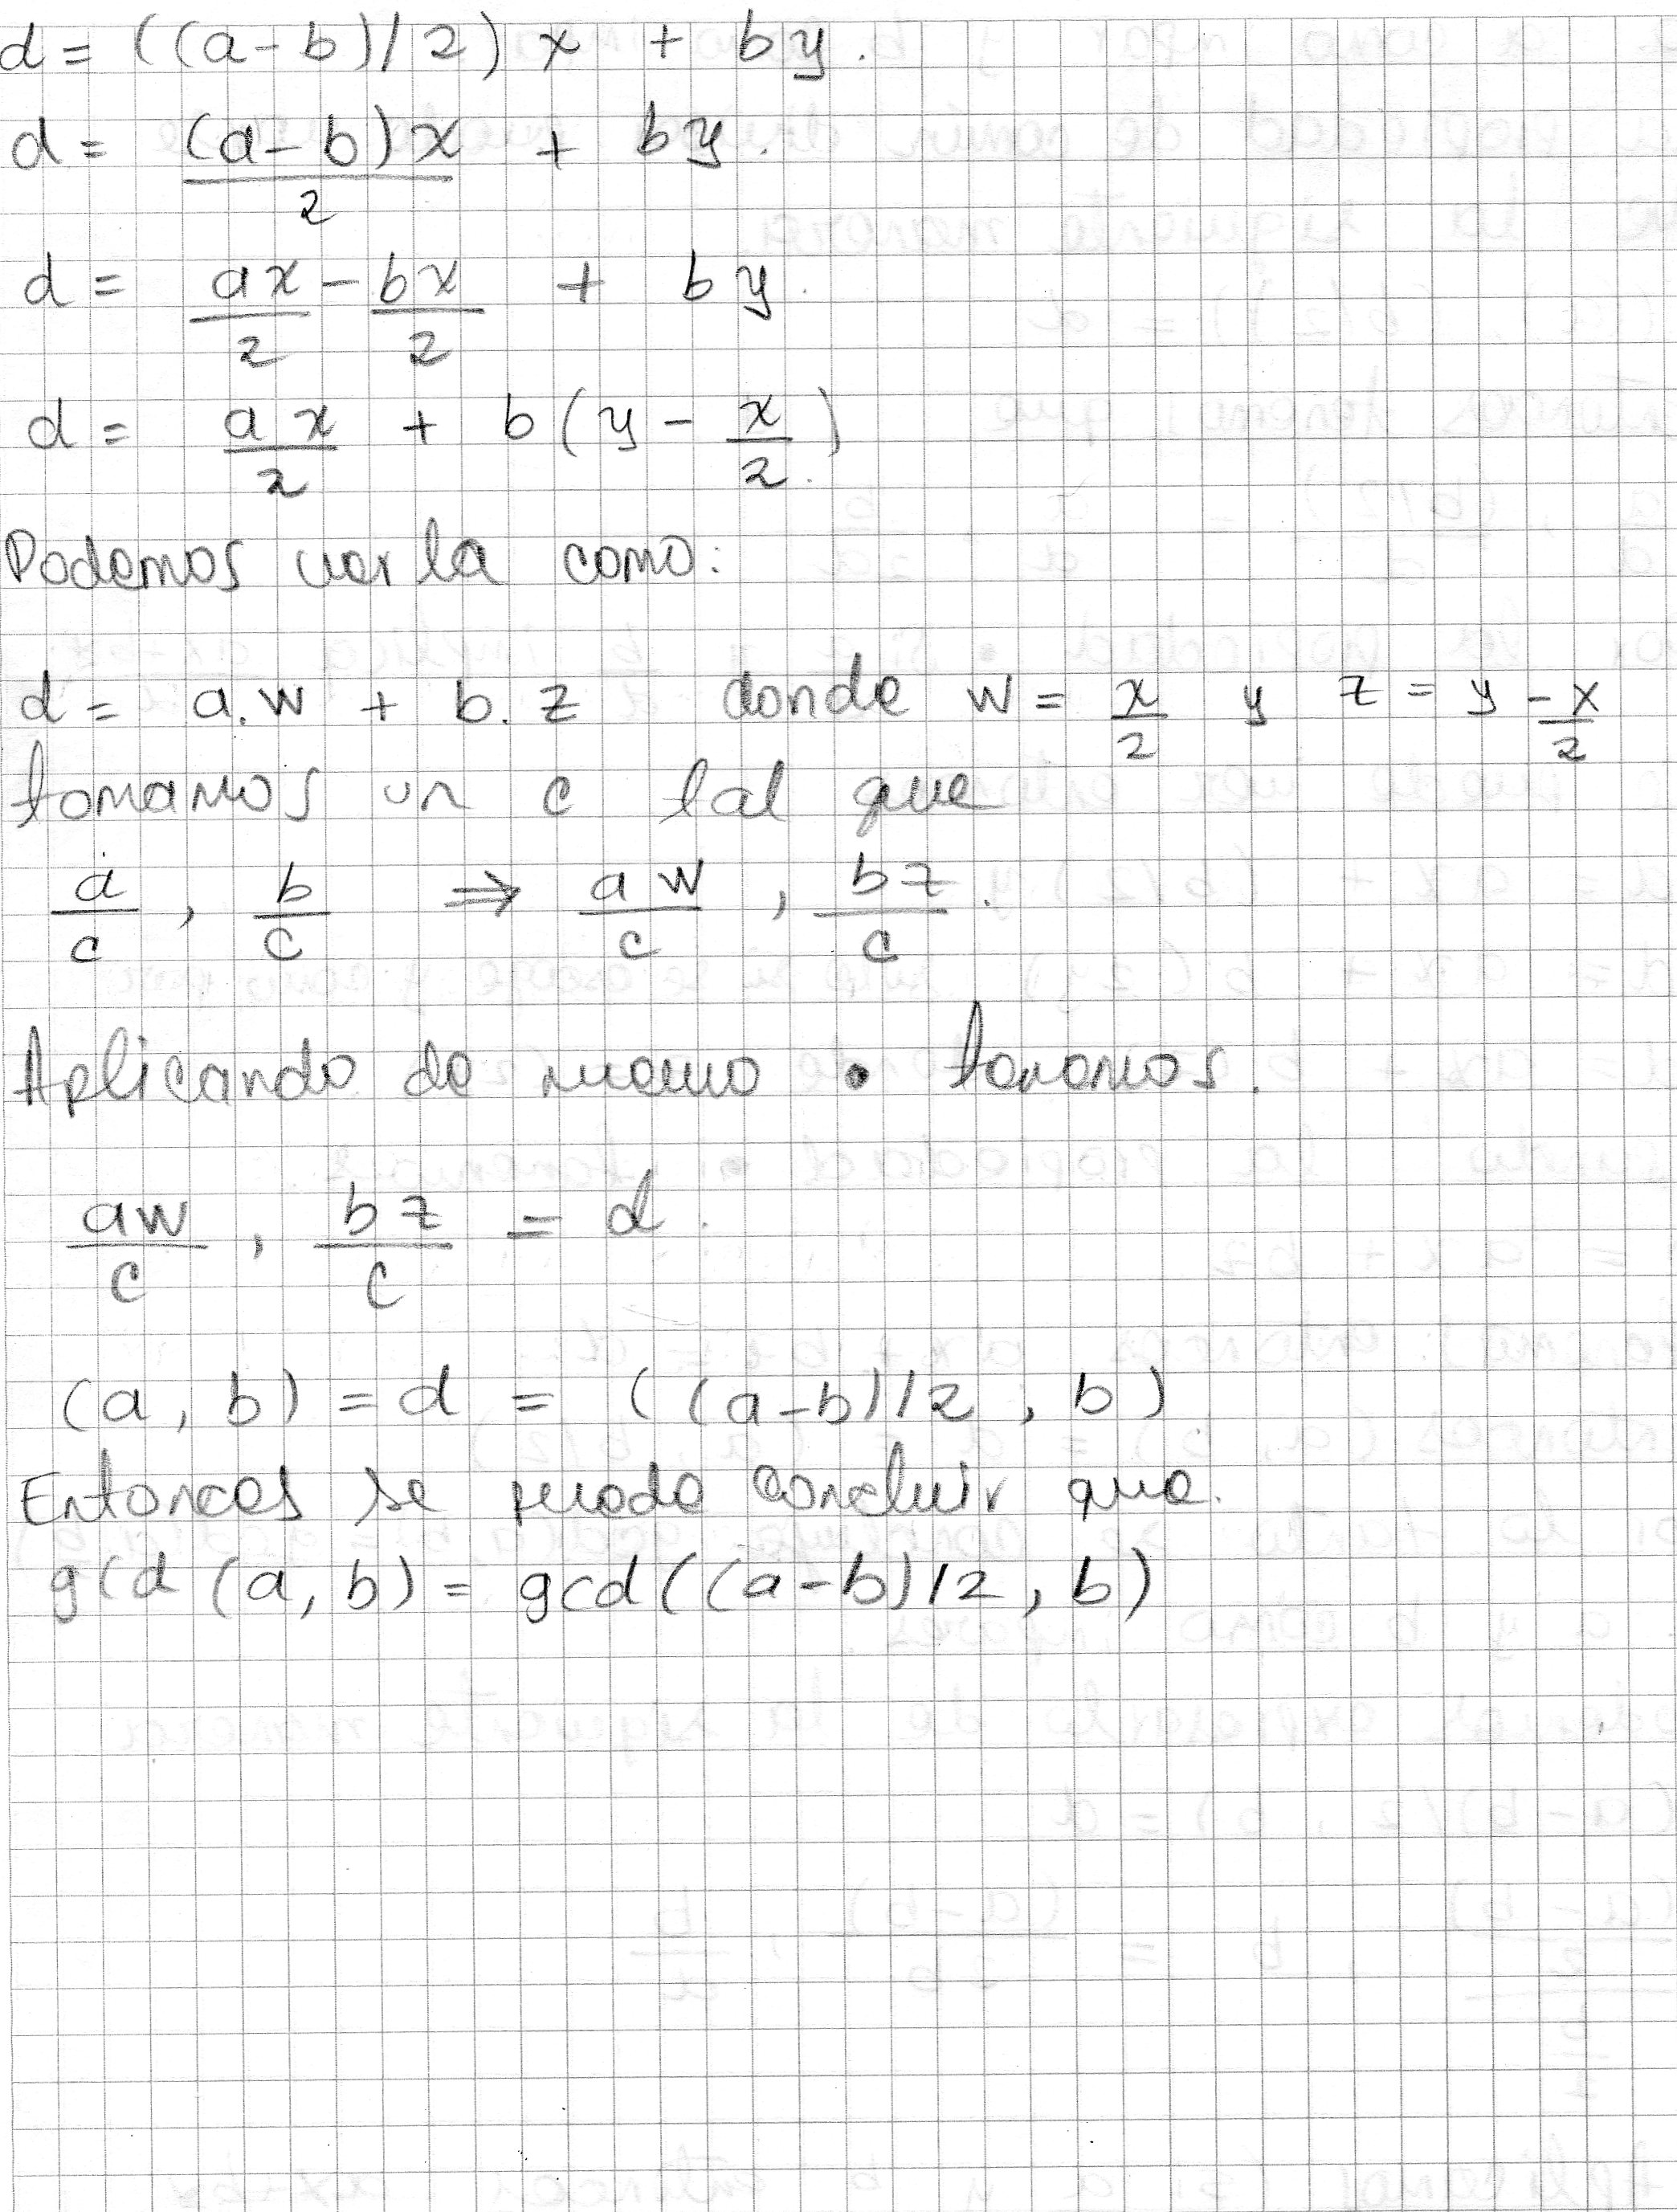 d = ((a-b)/2) x + by.
d = (a-b)x/2 + by.
d = ax/2 - bx/2 + by.
d = ax/2 + b(y - x/2)
Podemos verla como:
d = a.w + b.z donde w = x/2 y z = y - x/2
tomamos un c tal que
a/c , b/c ⇒ aw/c , bz/c.
Aplicando de nuevo • tenemos.
aw/c , bz/c = d.
(a, b) = d = ((a-b)/2, b)
Entonces se puede concluir que.
gcd (a, b) = gcd((a-b)/2, b)